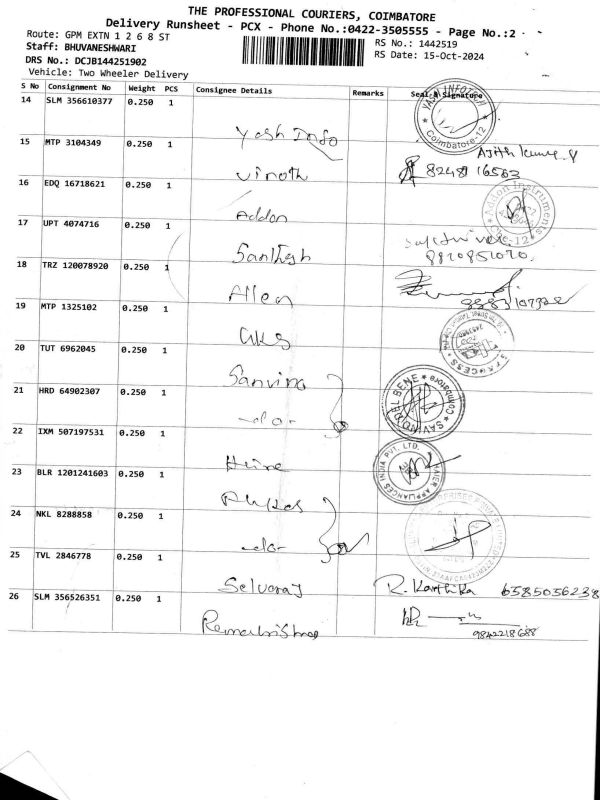 THE PROFESSIONAL COURIERS, COIMBATORE
Delivery Runsheet - PCX - Phone No.:0422-3505555 - Page No.:2
Route: GPM EXTN 1 2 6 8 ST
RS No.: 1442519
Staff: BHUVANESHWARI
RS Date: 15-Oct-2024
DRS No.: DCJB144251902
Vehicle: Two Wheeler Delivery
S No Consignment No Weight PCS Consignee Details Remarks Seal & Signature
14 SLM 356610377 0.250 1
Yash Info
YASH INFOTECH Coimbatore-12
15 MTP 3104349 0.250 1
Vinoth
16 EDQ 16718621 0.250 1
Addon
Addon Instruments Cbe-12
17 UPT 4074716 0.250 1
Santhosh
18 TRZ 120078920 0.250 1
Allen
19 MTP 1325102 0.250 1
20 TUT 6962045 0.250 1
21 HRD 64902307 0.250 1
-do-
SAVINO DEL BENE Coimbatore
22 IXM 507197531 0.250 1
HAIER APPLIANCES INDIA PVT. LTD.
23 BLR 1201241603 0.250 1
24 NKL 8288858 0.250 1
-do-
25 TVL 2846778 0.250 1
Selvaraj
R. Karthika 6385056238
26 SLM 356526351 0.250 1
9842218688